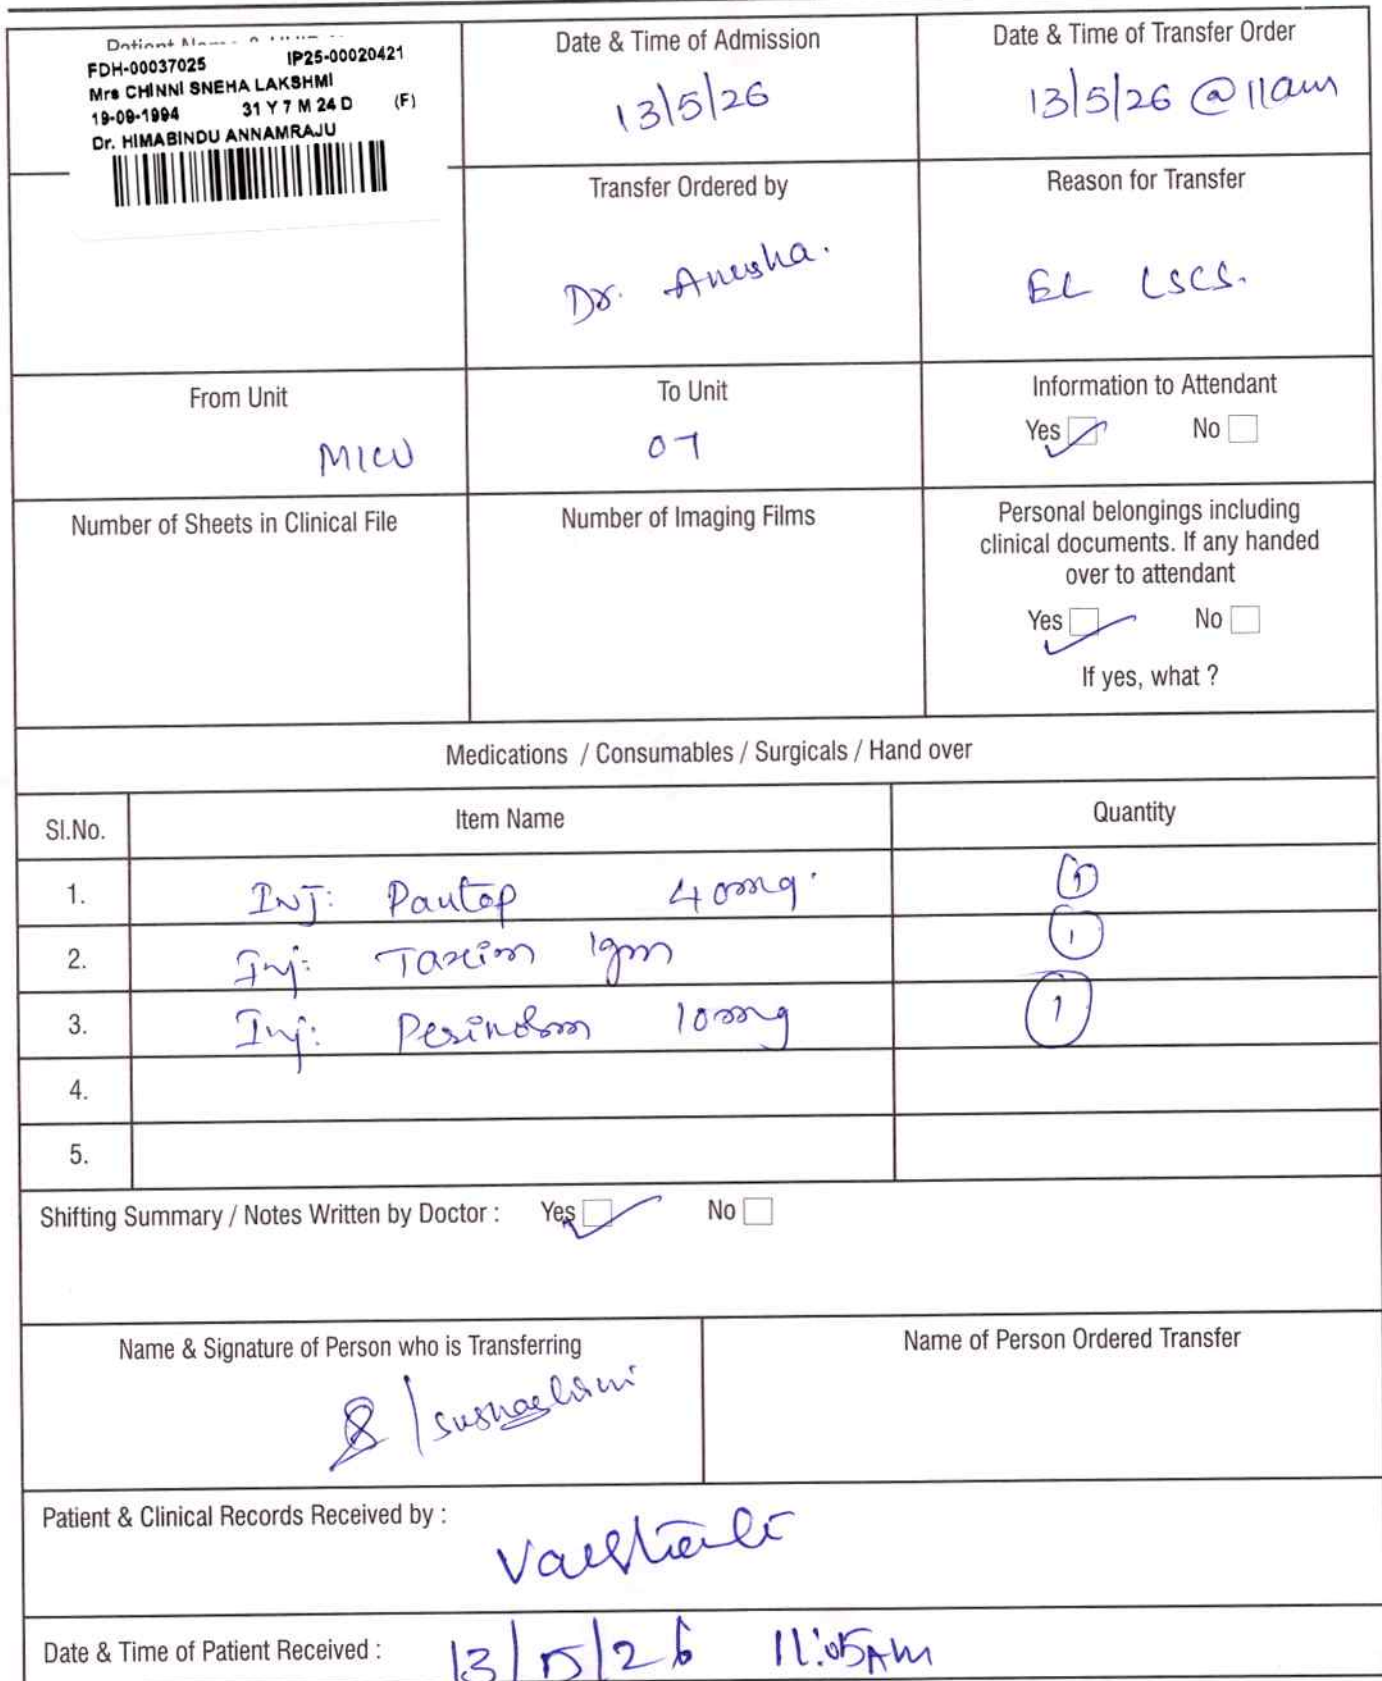 FDH-00037025 IP25-00020421
Mrs CHINNI SNEHA LAKSHMI
19-09-1994 31 Y 7 M 24 D (F)
Dr. HIMABINDU ANNAMRAJU
Date & Time of Admission
13/5/26
Date & Time of Transfer Order
13/5/26 @ 11am
Transfer Ordered by
Dr. Anusha.
Reason for Transfer
EL LSCS.
From Unit
MICU
To Unit
OT
Information to Attendant
Yes No
Number of Sheets in Clinical File
Number of Imaging Films
Personal belongings including
clinical documents. If any handed
over to attendant
Yes No
If yes, what ?
Medications / Consumables / Surgicals / Hand over
Sl.No. Item Name Quantity
1. INJ: Pantop 40mg. 1
2. Inj: Taxim 1gm 1
3. Inj: Perinorm 10mg 1
4.
5.
Shifting Summary / Notes Written by Doctor : Yes No
Name & Signature of Person who is Transferring
Name of Person Ordered Transfer
Patient & Clinical Records Received by :
Date & Time of Patient Received : 13/5/26 11:05AM